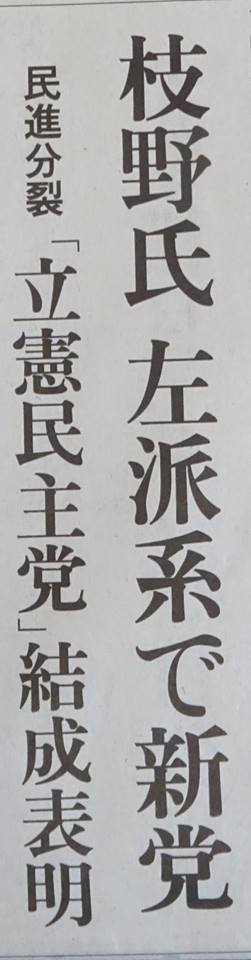 枝野氏 左派系で新党
民進分裂 「立憲民主党」結成表明